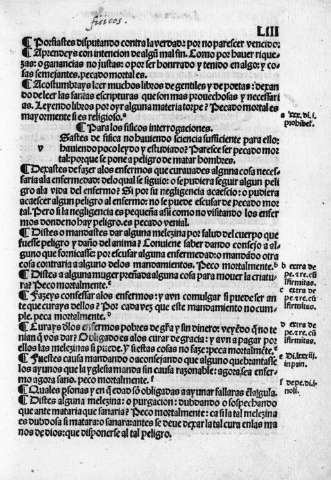 fisicos.
LIII
¶ Porfiastes disputando contra la verdad: por no parescer vencido:
¶ Aprendeys con intencion de algun mal fin. Como por hauer rique
zas: o ganancias no justas: o por ser honrrado y tenido en algo: y co
sas semejantes. pecado mortal es.
¶ Acostumbrays leer muchos libros de gentiles y de poetas: dexan
do de leer las sanctas escripturas que son mas prouechosas y necessari
as. Leyendo libros por oyr alguna materia torpe? Pecado mortal es
mayormente si es religioso.
a xxx. di. i.
prohibet.
¶ Para los fisicos interrogaciones.
Sastes de fisica no hauiendo sciencia sufficiente para ello:
v hauiendo poco leydo y estudiado? Paresce ser pecado mor
tal: porque se pone a peligro de matar hombres.
¶ Dexastes de fazer alos enfermos que curauades alguna cosa necessa
ria ala enfermedad: delo qual se siguio: o se pudiera seguir algun peli
gro ala vida del enfermo? Si por su negligencia acaescio: o pudiera
acaescer algun peligro al enfermo: no se puede escusar de pecado mor
tal. Pero si la negligencia es pequeña assi como no visitando los enfer
mos donde no hay peligro. es pecado venial.
¶ Distes o mandastes dar alguna melezina por salud del cuerpo que
fuesse peligro y daño del anima? Conuiene saber dando consejo a al
guno que fornicasse: por escusar alguna enfermedad: o mandado otra
cosa contraria a alguno delos mandamientos. Peco mortalmente.
b extra de
pe. z re. cū
ifirmitas.
¶ Distes a alguna muger preñada alguna cosa para mouer la criatu
ra? Peco mortalmente.
c extra de
pe. z re. cū
ifirmitas.
¶ Fazeys confessar alos enfermos: y avn comulgar si puede ser an
te que curays dellos? Por cada vez que este mandamiento no cum
ple. peca mortalmente.
¶ Curays dlos enfermos pobres de gra y sin dinero: veyedo q no te
nian q vos dar? Obligado es alos curar de gracia: y avn a pagar por
ellos las melezinas si puede. Y si estas cosas no faze: peca mortalmete.
d extra de
pe. z re. cū
ifirmitas.
¶ Fuestes causa mandando o aconsejando que alguno quebrantasse
los ayunos que la yglesia manda sin causa razonable: agora sea enfer
mo agora sano. peco mortalmente.
e Di. lxxxiii.
¶ Quales psonas y en q edad so obligadas a ayunar fallaras
f
¶ Distes alguna melezina o purgacion: dubdando o sospechando
que ante mataria que sanaria? Peco mortalmente: ca si la tal melezina
es dubdosa si matara: o sanara: antes se deue dexar la tal cura enlas ma
nos de dios: que disponerse al tal peligro.